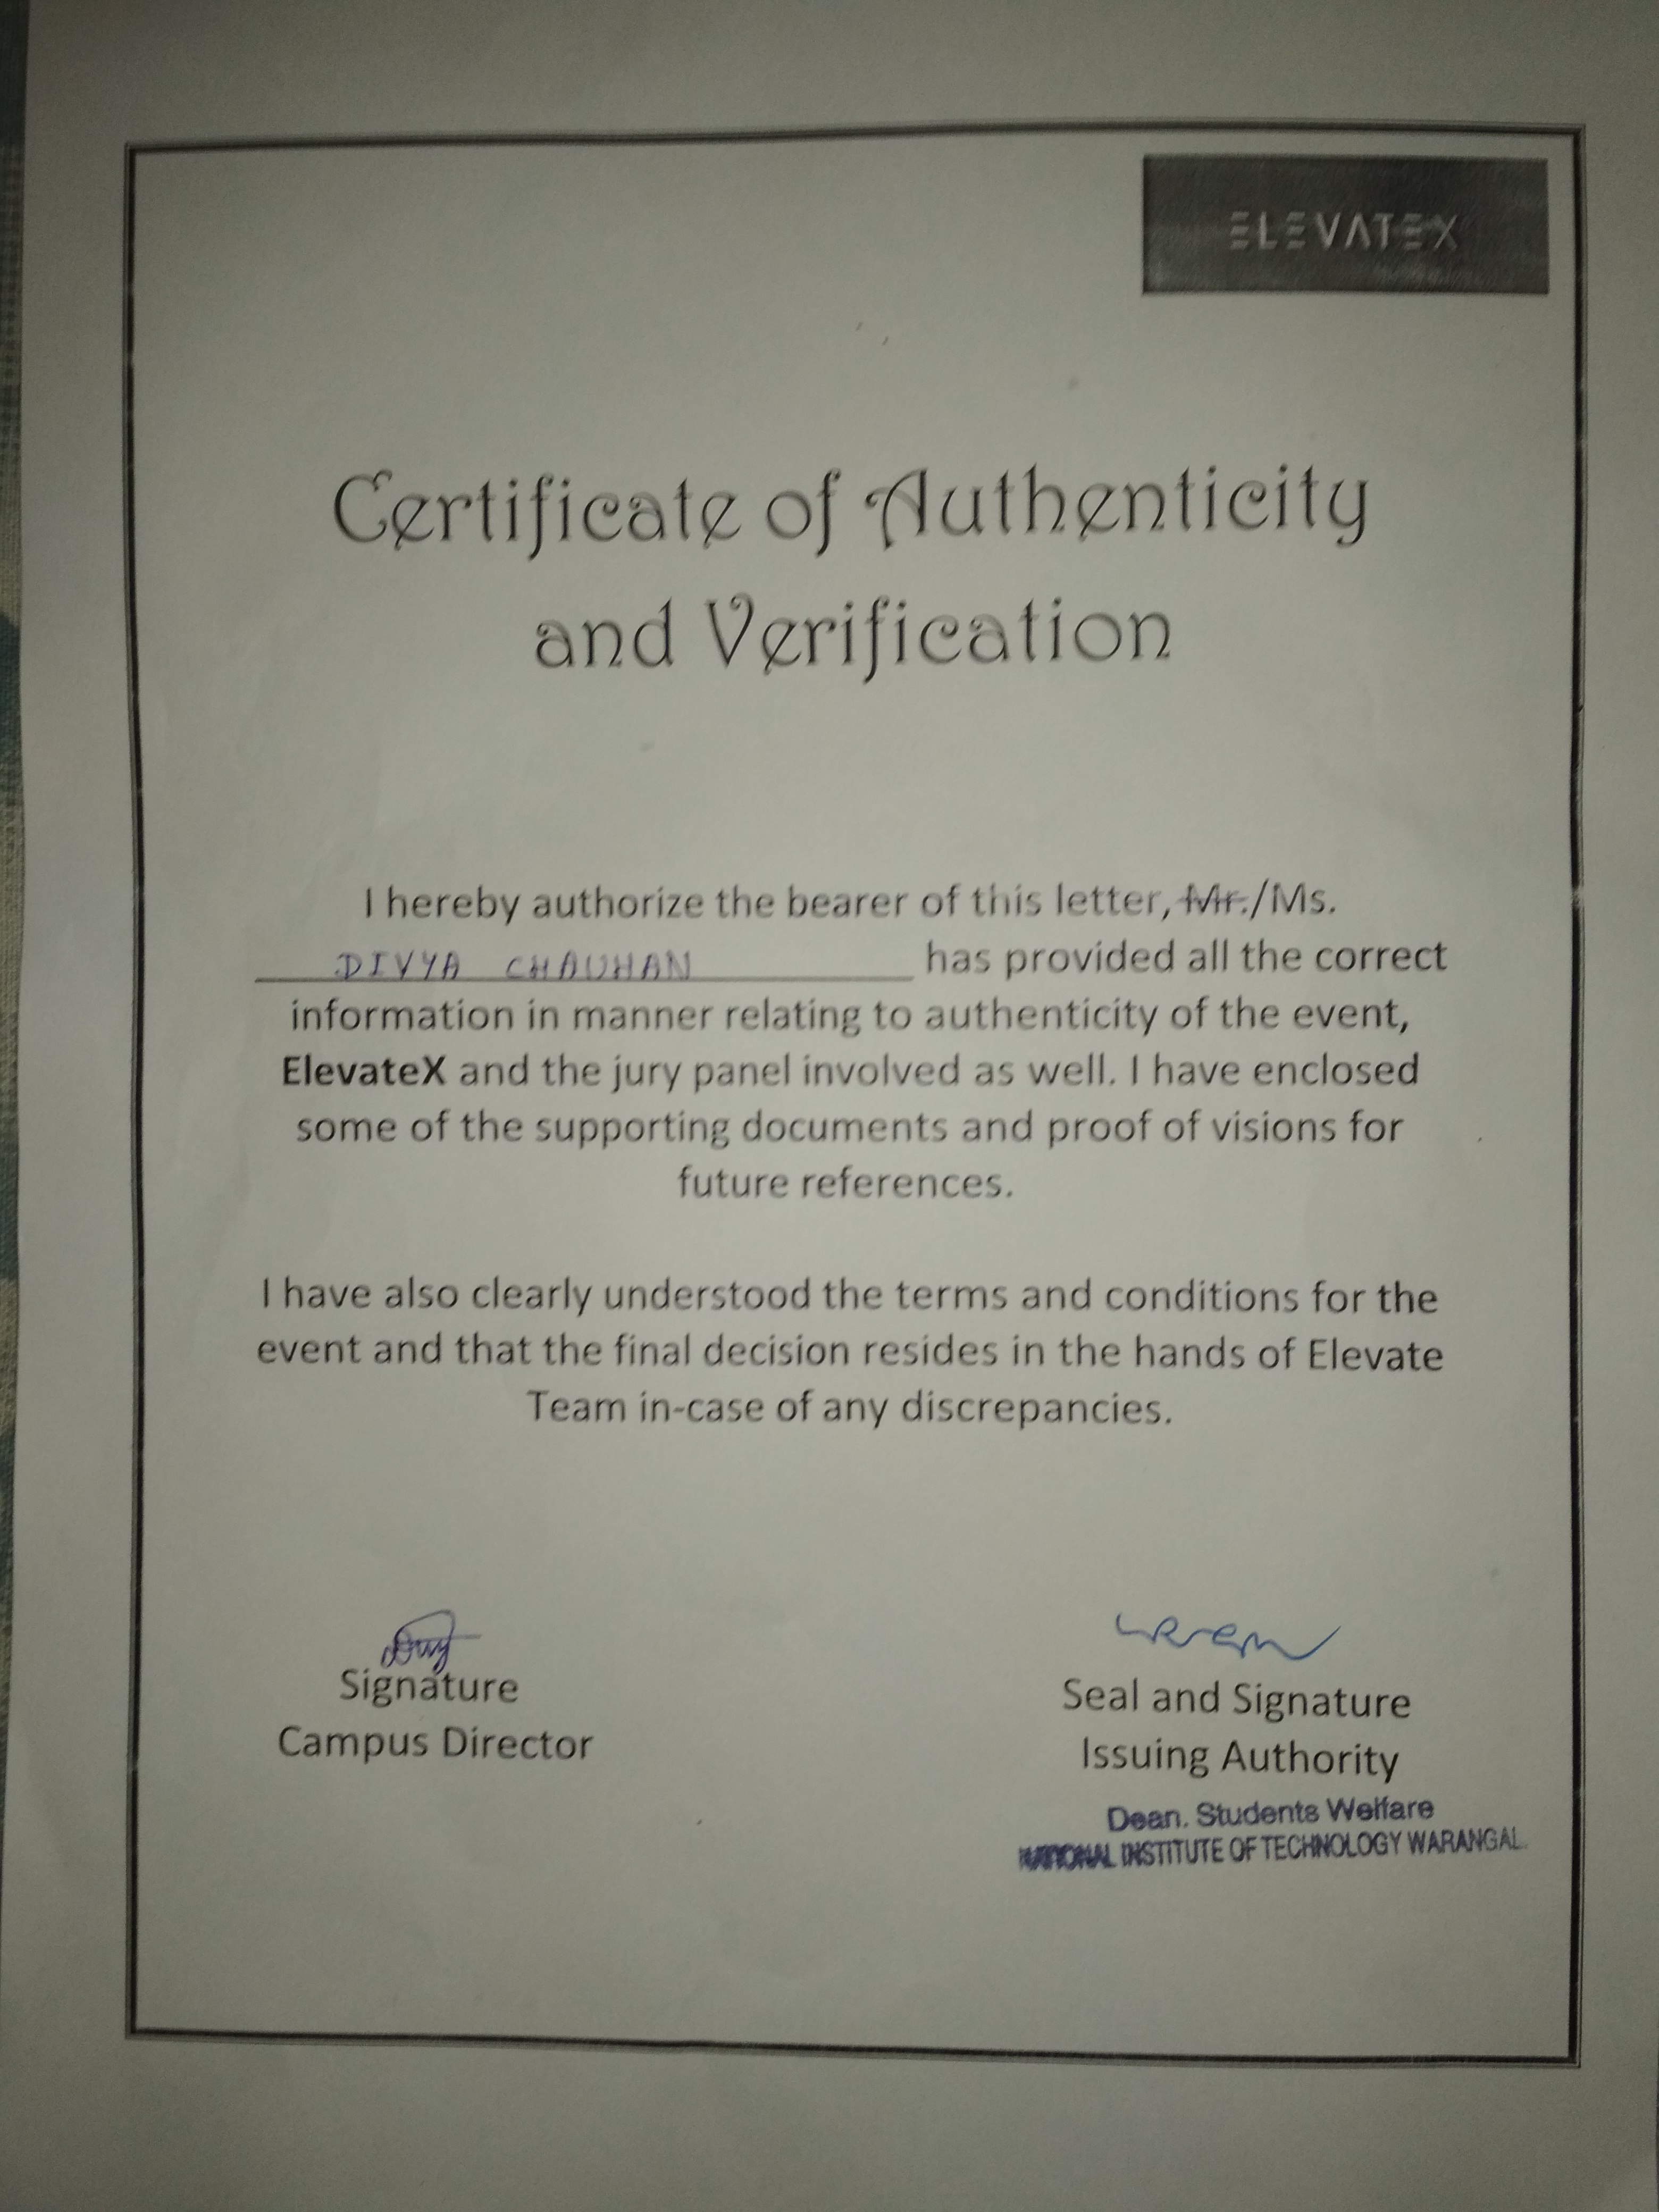 ELEVATEX
Certificate of Authenticity
and Verification
I hereby authorize the bearer of this letter, Mr./Ms.
DIVYA CHAUHAN has provided all the correct
information in manner relating to authenticity of the event,
ElevateX and the jury panel involved as well. I have enclosed
some of the supporting documents and proof of visions for
future references.
I have also clearly understood the terms and conditions for the
event and that the final decision resides in the hands of Elevate
Team in-case of any discrepancies.
Signature
Campus Director
Seal and Signature
Issuing Authority
Dean. Students Welfare
NATIONAL INSTITUTE OF TECHNOLOGY WARANGAL.